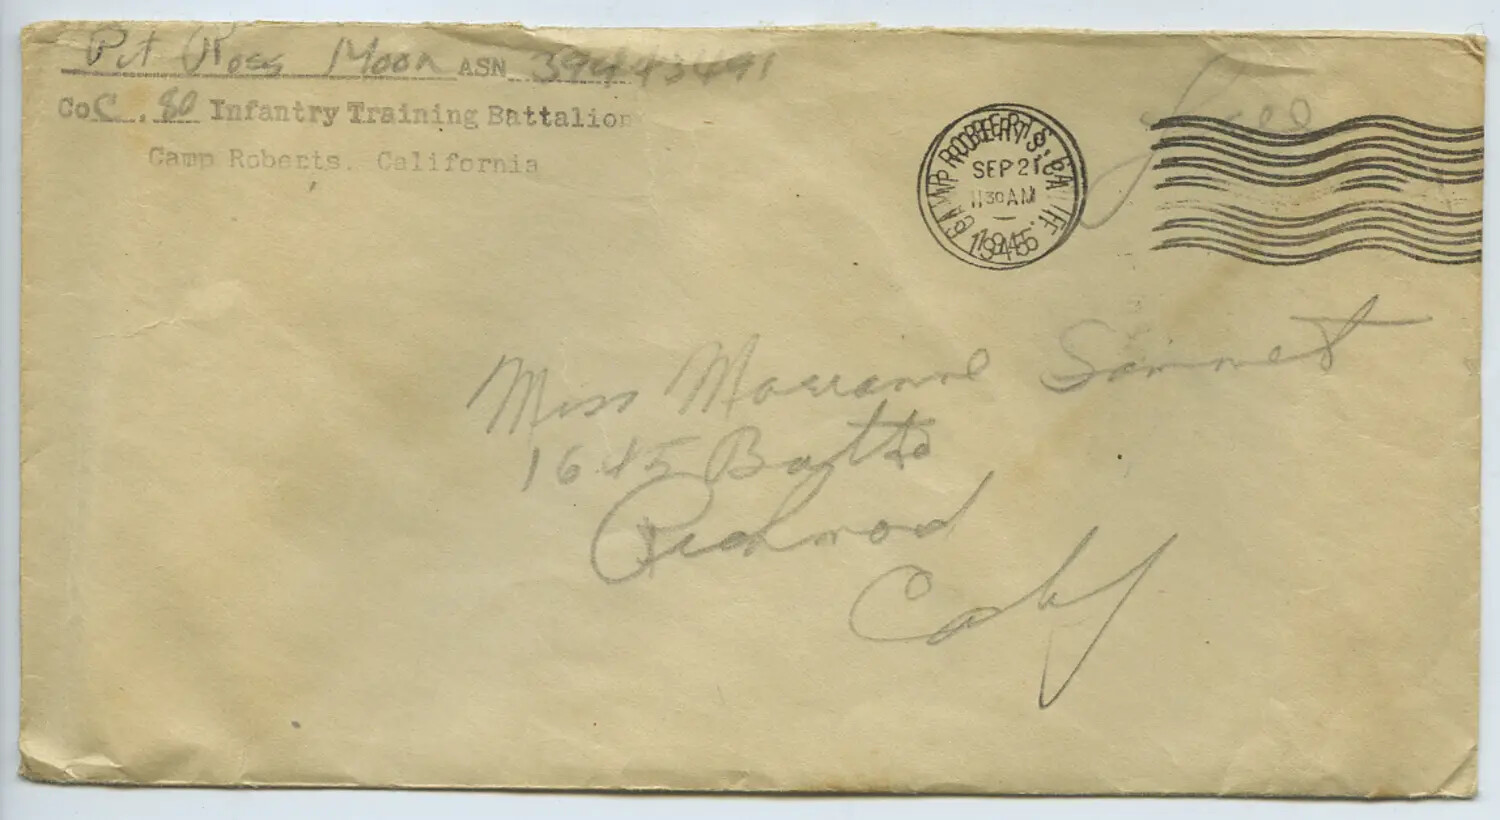 Pvt Ross Moon ASN 39443491
Co C. 80 Infantry Training Battalion
Camp Roberts. California
Free
CAMP ROBERTS, CALIF.
SEP 21
11 30 AM
1945
Miss Marianne Sammet
1645
Richmod
Calif